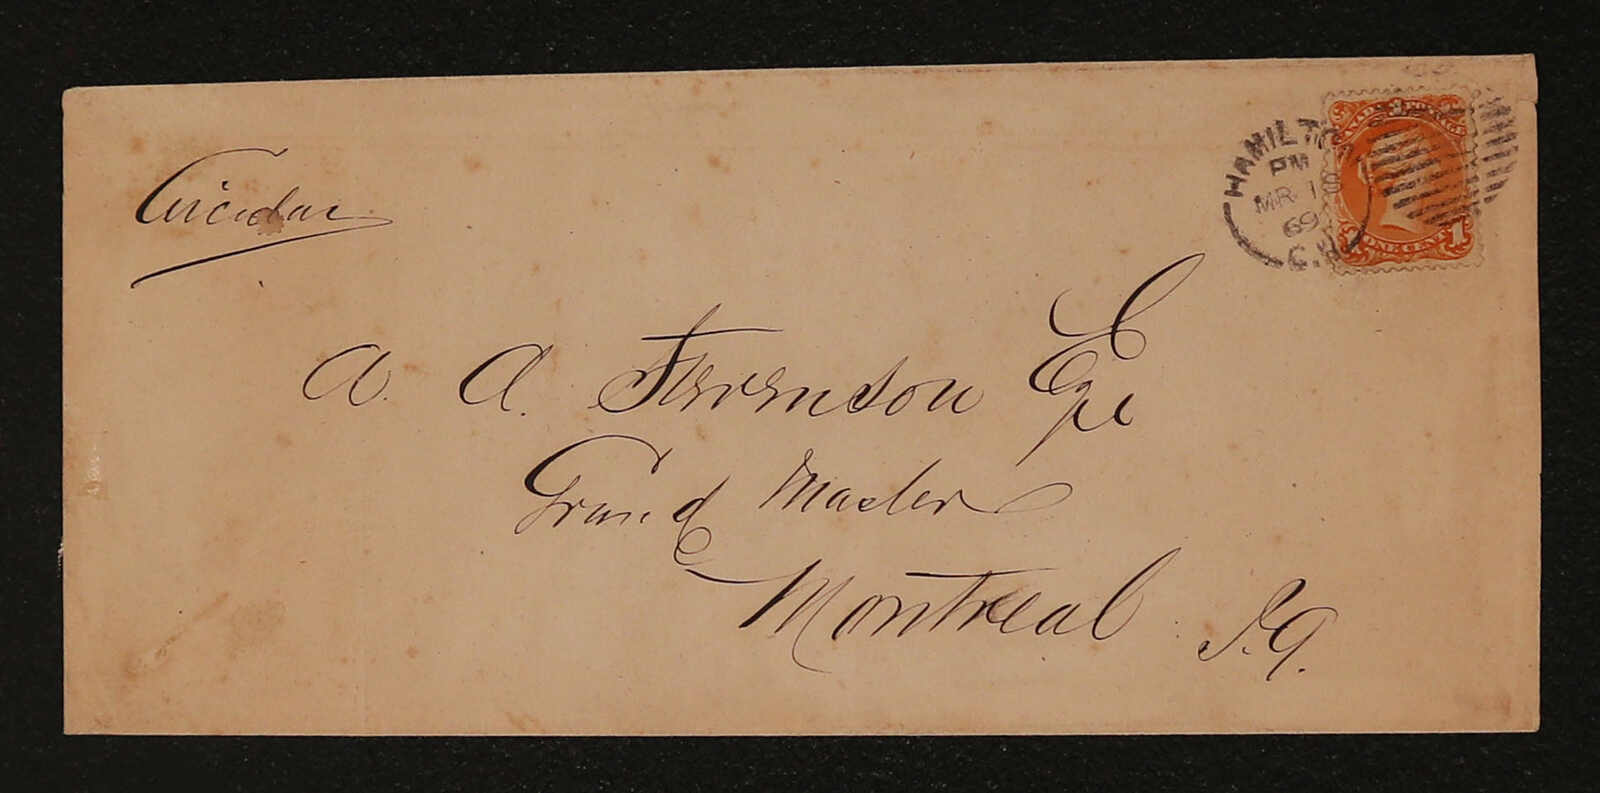 Circular
HAMILTON
PM
MR 1
69
C.W
CANADA POSTAGE
ONE CENT 1
A. A. Stevenson Eqe
Grand Master
Montreal P.Q.